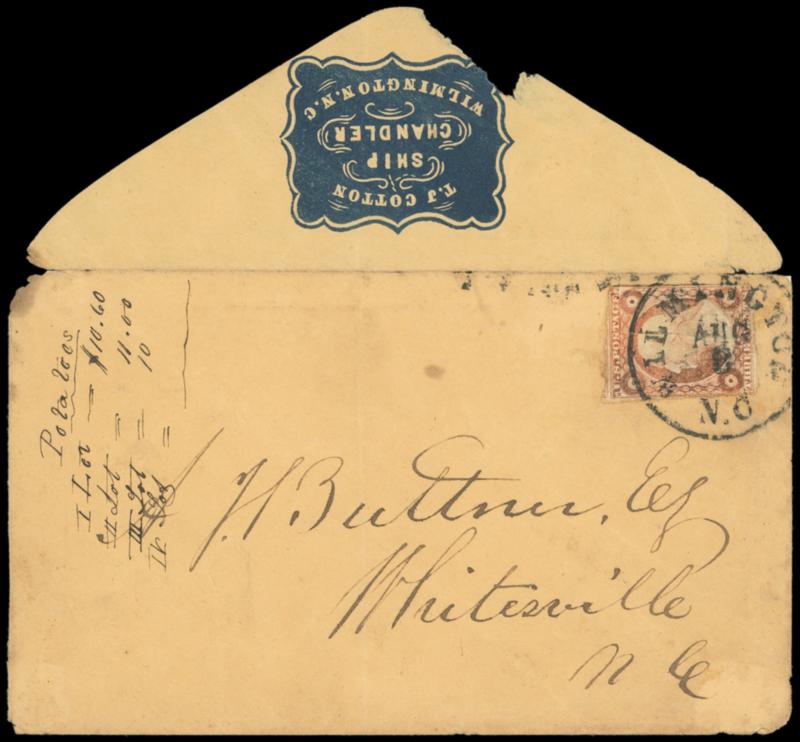 T. J. COTTON
SHIP
CHANDLER
WILMINGTON. N.C
WILMINGTON
AUG
N.C
U.S. POSTAGE
THREE
Potatoes
I Lot = $10.60
II Lot = 11.00
III Lot = 10
IV Lot =
J. H. Buttner, Esq
Whitesville
N Ca